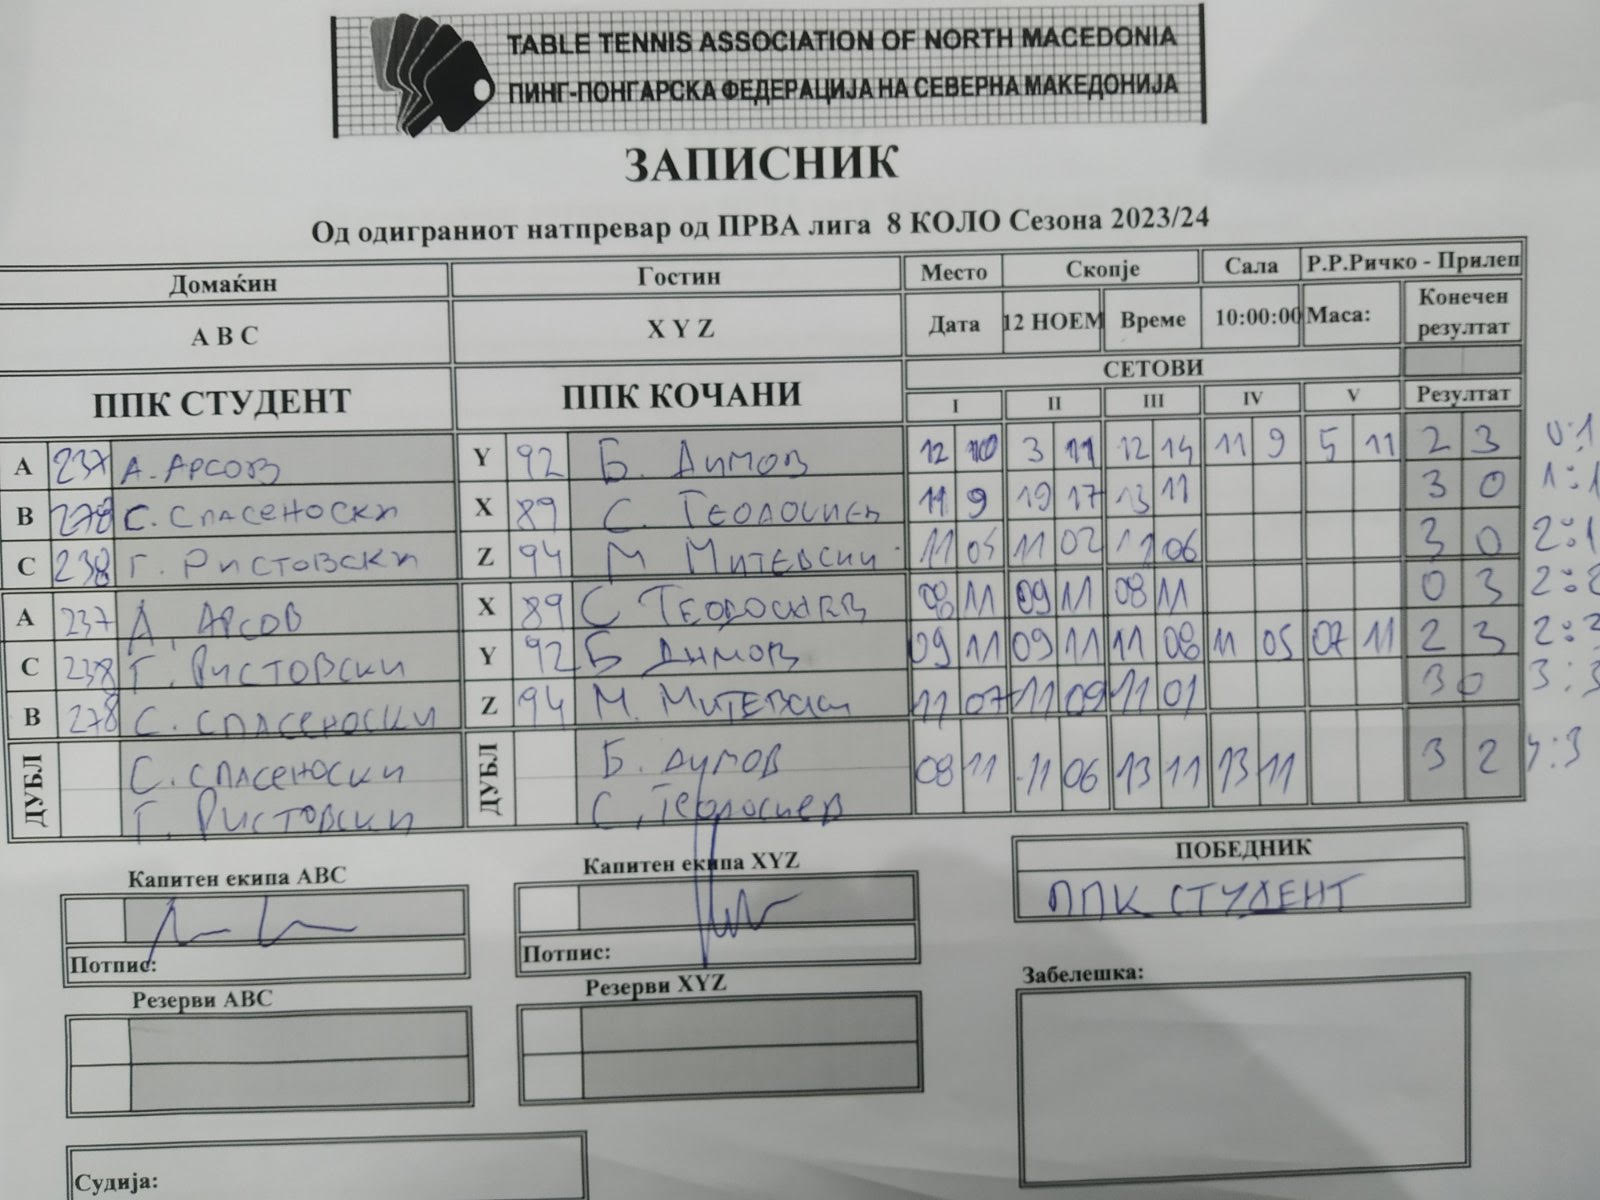 TABLE TENNIS ASSOCIATION OF NORTH MACEDONIA
ПИНГ-ПОНГАРСКА ФЕДЕРАЦИЈА НА СЕВЕРНА МАКЕДОНИЈА
ЗАПИСНИК
Од одиграниот натпревар од ПРВА лига 8 КОЛО Сезона 2023/24
Домаќин Гостин Место Скопје Сала Р.Р.Ричко - Прилеп
A B C X Y Z Дата 12 НОЕМ Време 10:00:00 Маса: Конечен резултат
СЕТОВИ
ППК СТУДЕНТ ППК КОЧАНИ I II III IV V Резултат
A 237 А. АРСОВ Y 92 Б. ДИМОВ 12 10 3 11 12 14 11 9 5 11 2 3 0:1
B 278 С. СПАСЕНОСКИ X 89 С. ТЕОДОСИЕВ 11 9 19 17 13 11 3 0 1:1
C 238 Г. РИСТОВСКИ Z 94 М МИТЕВСКИ 11 05 11 02 11 06 3 0 2:1
A 237 А. АРСОВ X 89 С ТЕОДОСИЕВ 08 11 09 11 08 11 0 3 2:2
C 238 Г. РИСТОВСКИ Y 92 Б ДИМОВ 09 11 09 11 11 08 11 05 07 11 2 3 2:3
B 278 С. СПАСЕНОСКИ Z 94 М. МИТЕВСКИ 11 07 11 09 11 01 3 0 3:3
ДУБЛ С. СПАСЕНОСКИ ДУБЛ Б. ДИМОВ 08 11 11 06 13 11 13 11 3 2 4:3
Г. РИСТОВСКИ С. ТЕОДОСИЕВ
Капитен екипа ABC Капитен екипа XYZ ПОБЕДНИК
ППК СТУДЕНТ
Потпис: Потпис:
Резерви ABC Резерви XYZ Забелешка:
Судија: